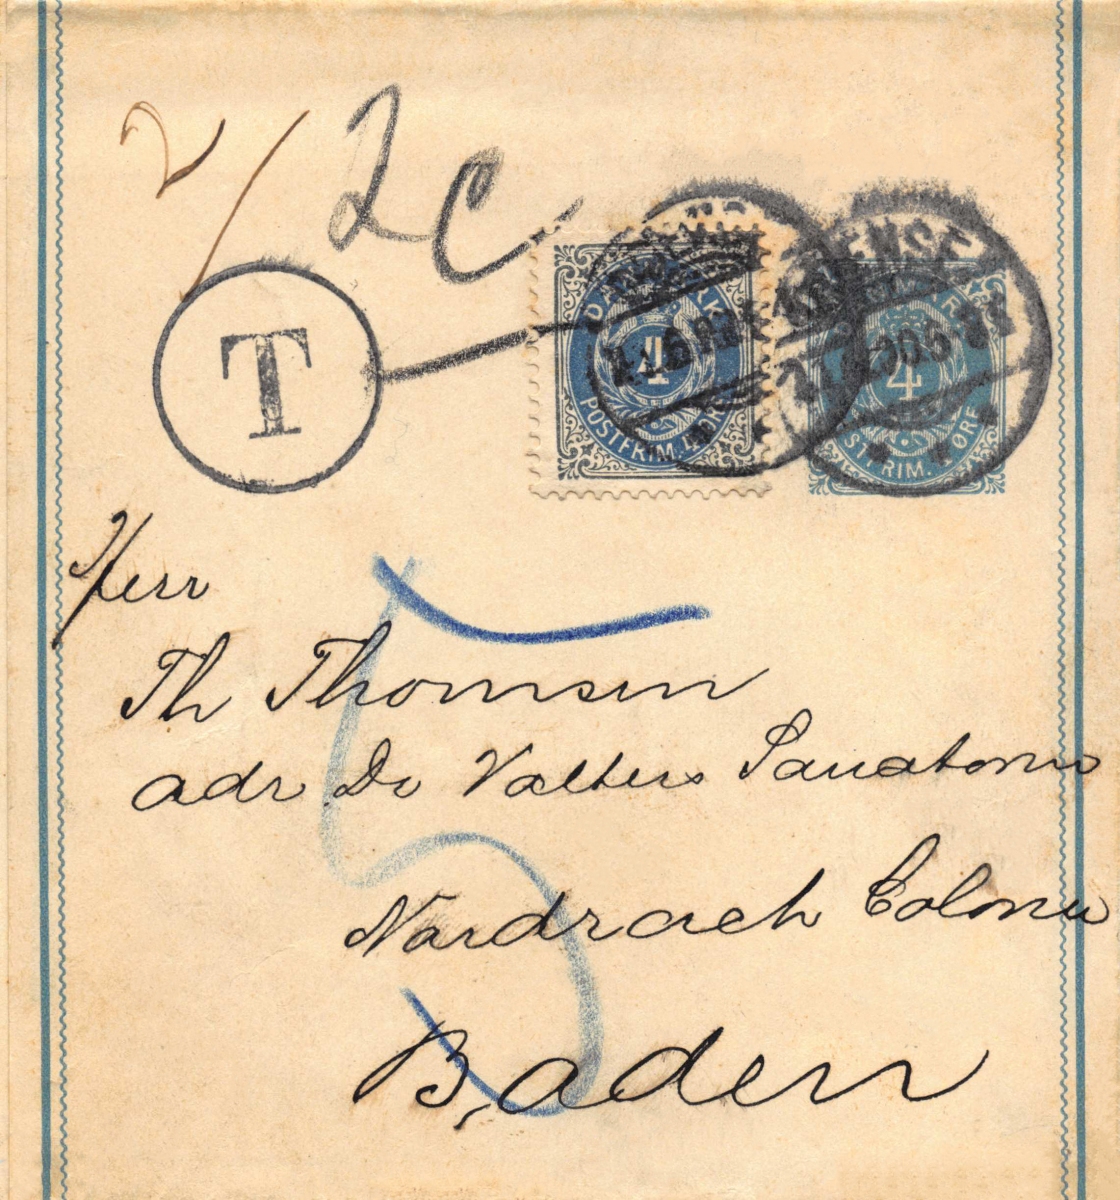 2/
2c
T
DANMARK
4
POSTFRIM. 4 ØRE
ODENSE
4
POSTFRIM. 4 ØRE
5
Herr
Th Thomsen
adr Dr Valters Sanatorium
Nordrach Colonie
Baden